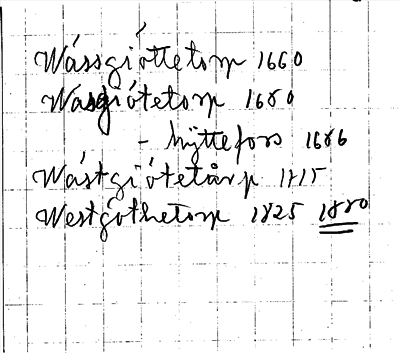 Wássgióttetorp 1660
Wasgiótetorp 1680
- hÿttefors 1686
Wástgiótetårp 1715
Westgóthetorp 1825 1880